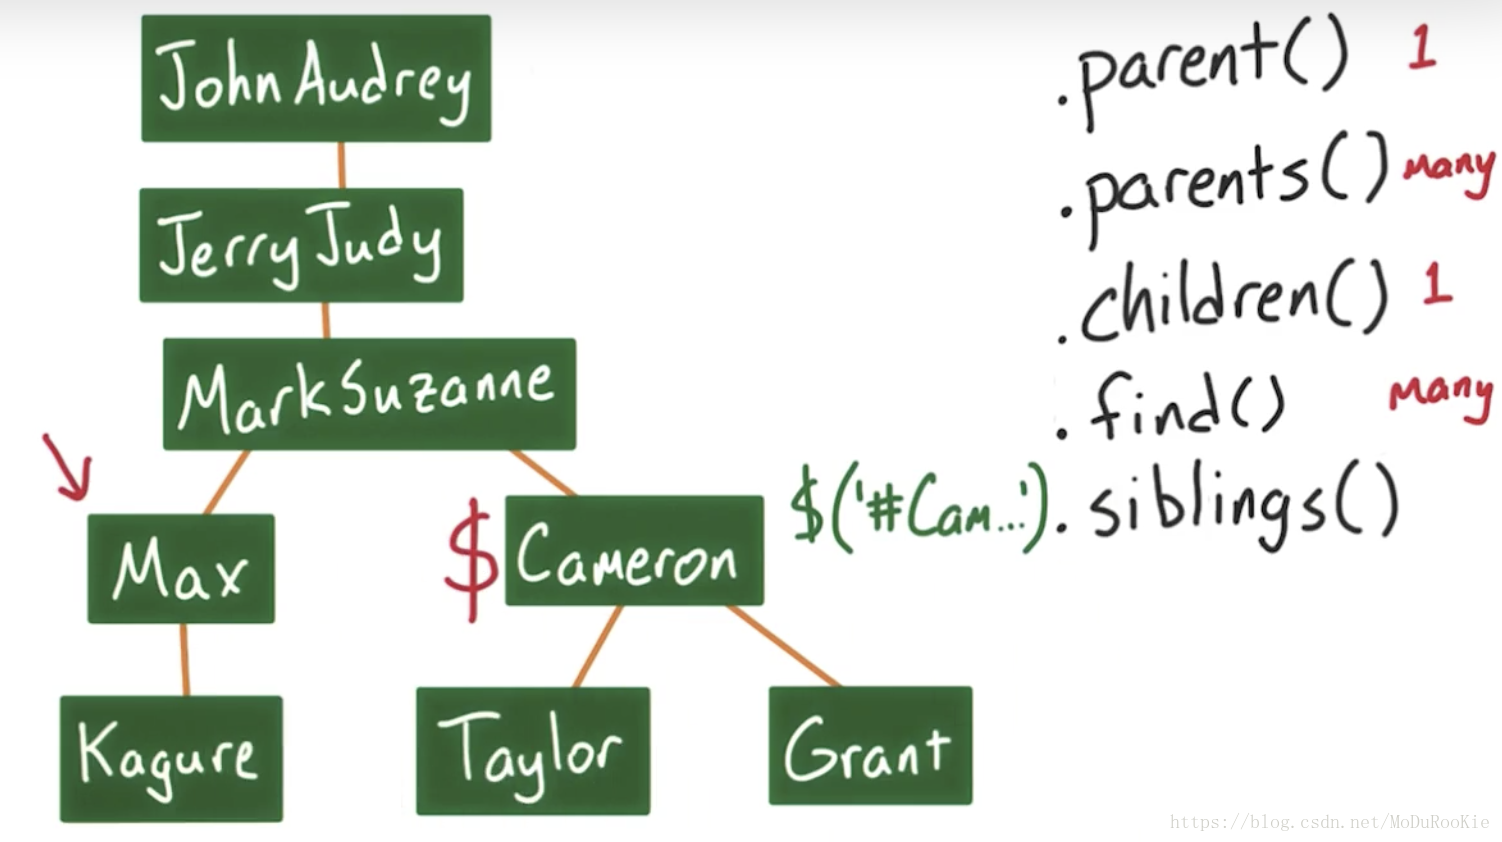 John Audrey
Jerry Judy
Mark Suzanne
Max
$ Cameron
Kagure
Taylor
Grant
.parent() 1
.parents() Many
.children() 1
.find() Many
$('#Cam...').siblings()
https://blog.csdn.net/MoDuRooKie